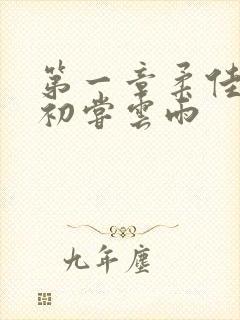 第一章柔佳
初嘗雲雨
九年塵